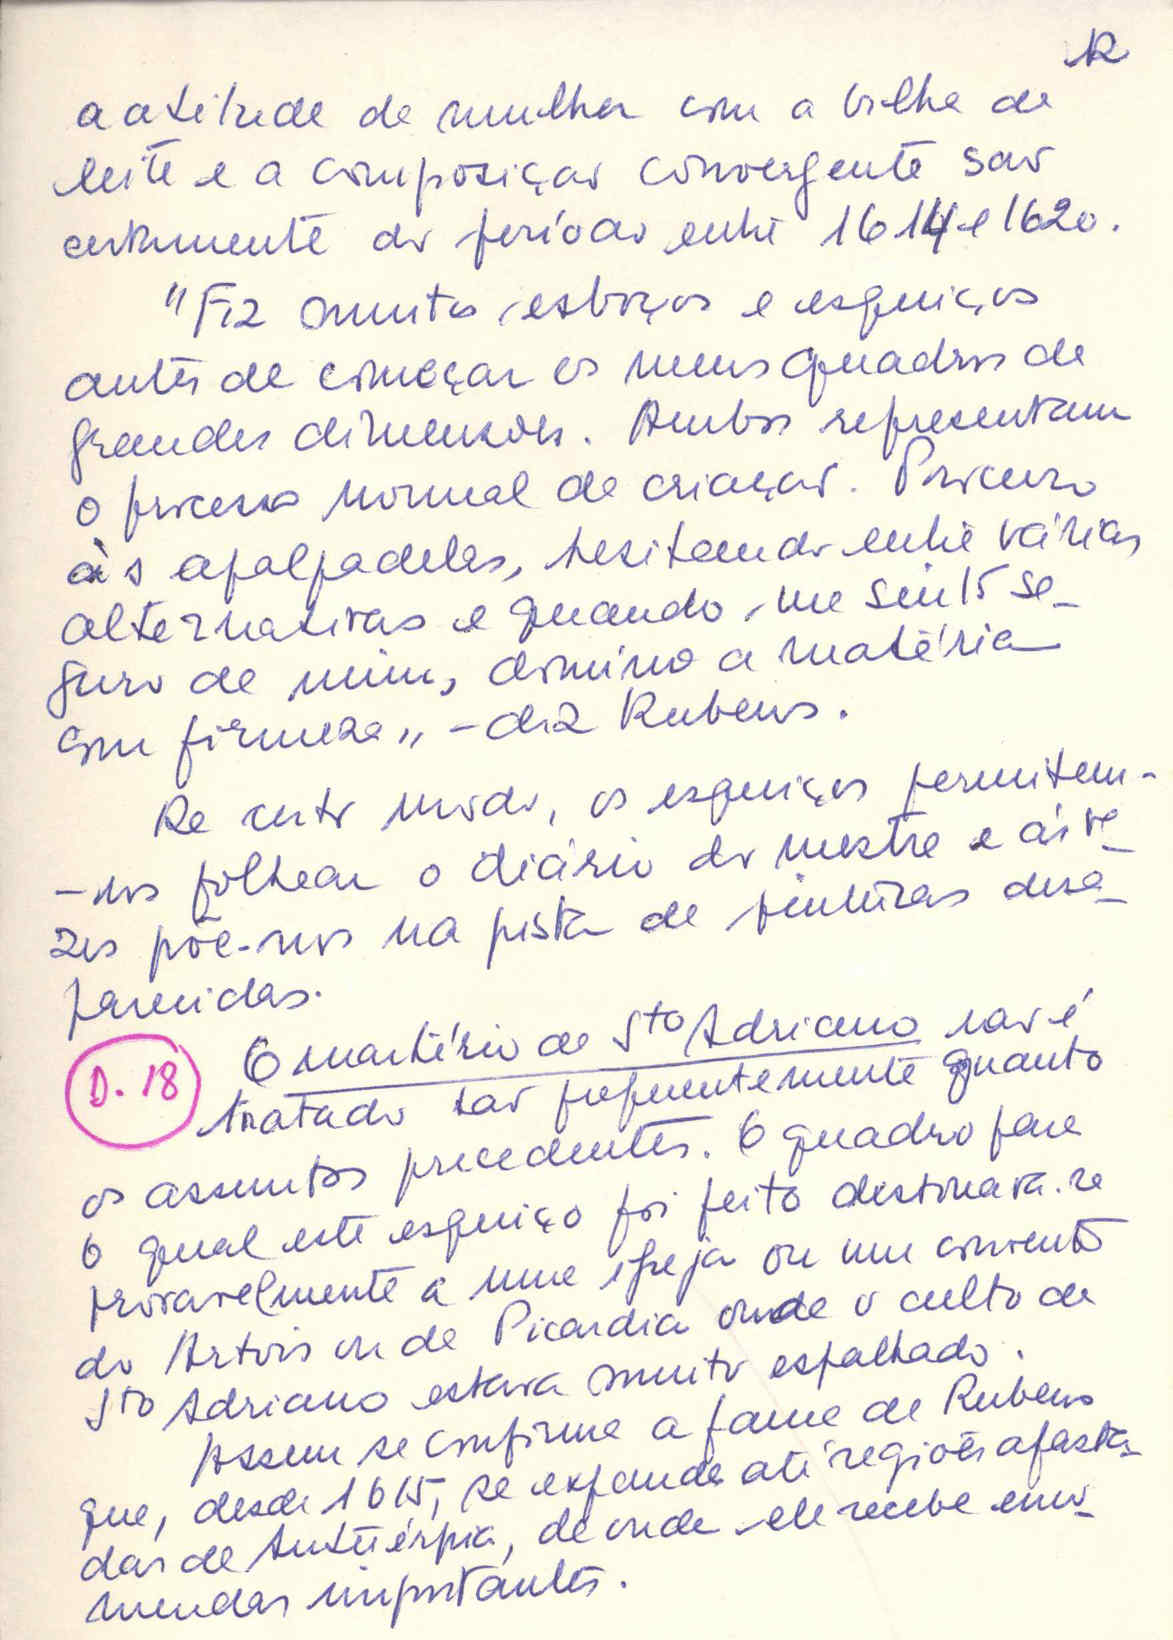 12
a atitude da mulher com a bilha de
leite e a composição convergente são
certamente do período entre 1614 e 1620.
"Fiz muitos esboços e esquiços
antes de começar os meus quadros de
grandes dimensões. Ambos representam
o processo normal de criação. Procuro
às apalpadelas, hesitando entre várias
alternativas e quando me sinto se-
guro de mim, domino a matéria
com firmeza" - diz Rubens.
De certo modo, os esquiços permitem-
-nos folhear o diário do mestre e às ve-
zes põe-nos na pista de pinturas desa-
parecidas.
D. 18
O martírio de Sto Adriano não é
tratado tão frequentemente quanto
os assuntos precedentes. O quadro para
o qual este esquiço foi feito destinava-se
provavelmente a uma igreja ou um convento
do Artois ou de Picardia onde o culto de
Sto Adriano estava muito espalhado.
Assim se confirma a fama de Rubens
que, desde 1615, se expande até regiões afasta-
das de Antuérpia, de onde ele recebe enco-
mendas importantes.